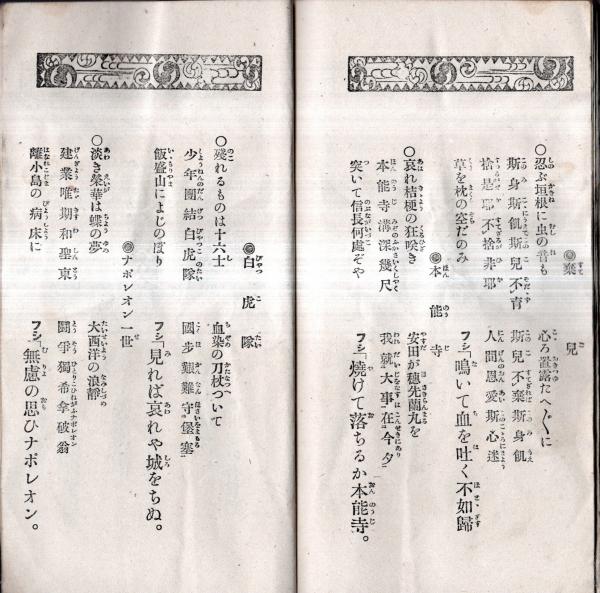 ◎棄兒
○忍ぶ垣根に虫の音も　心ろ置露たへ〲に
斯身斯飢斯兒不育　斯兒不棄斯身飢
捨是耶不捨非耶　人間恩愛斯心迷
草を枕の空だのみ　フシ「鳴いて血を吐く不如歸
◎本能寺
○哀れ桔梗の狂咲き　安田が穗先蘭丸を
本能寺溝深幾尺　我就大事在今夕
突いて信長何處ぞや　フシ「燒けて落ちるか本能寺。
◎白虎隊
○殘れるものは十六士　血染の刀杖ついて
少年團結白虎隊　國步艱難守堡塞
飯盛山によじのぼり　フシ「見れば哀れや城をちぬ。
◎ナポレオン一世
○淡き榮華は蝶の夢　大西洋の浪靜
建業唯期和聖東　鬪爭獨希拿破翁
離小島の病床に　フシ「無慮の思ひナポレオン。